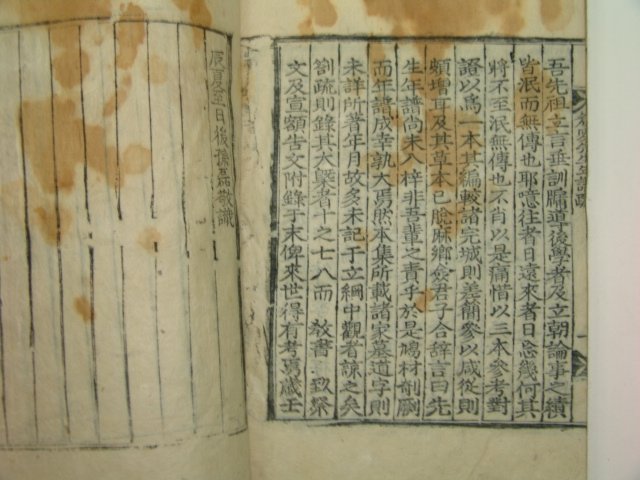 吾先祖立言垂訓牖導後學者及立朝論事之績
皆泯而無傳也耶噫往者日遠來者日忘幾何其
將不至泯無傳也不肖以是痛惜以三本參考對
證以爲一本其編較諸完城則差簡參以咸從則
頗增耳及其草本已脫麻鄕僉君子合辭言曰先
生年譜尚未入梓非吾輩之責乎於是鳩材剞劂
而年譜成幸孰大焉然本集所載諸家墓道字則
未詳所著年月故多未記于立綱中觀者諒之矣
劄疏則錄其大槩者十之七八而 敎書 致祭
文及宣額告文附錄于末俾來世得有考焉歲壬
辰夏至日後孫磊敬識
年譜跋